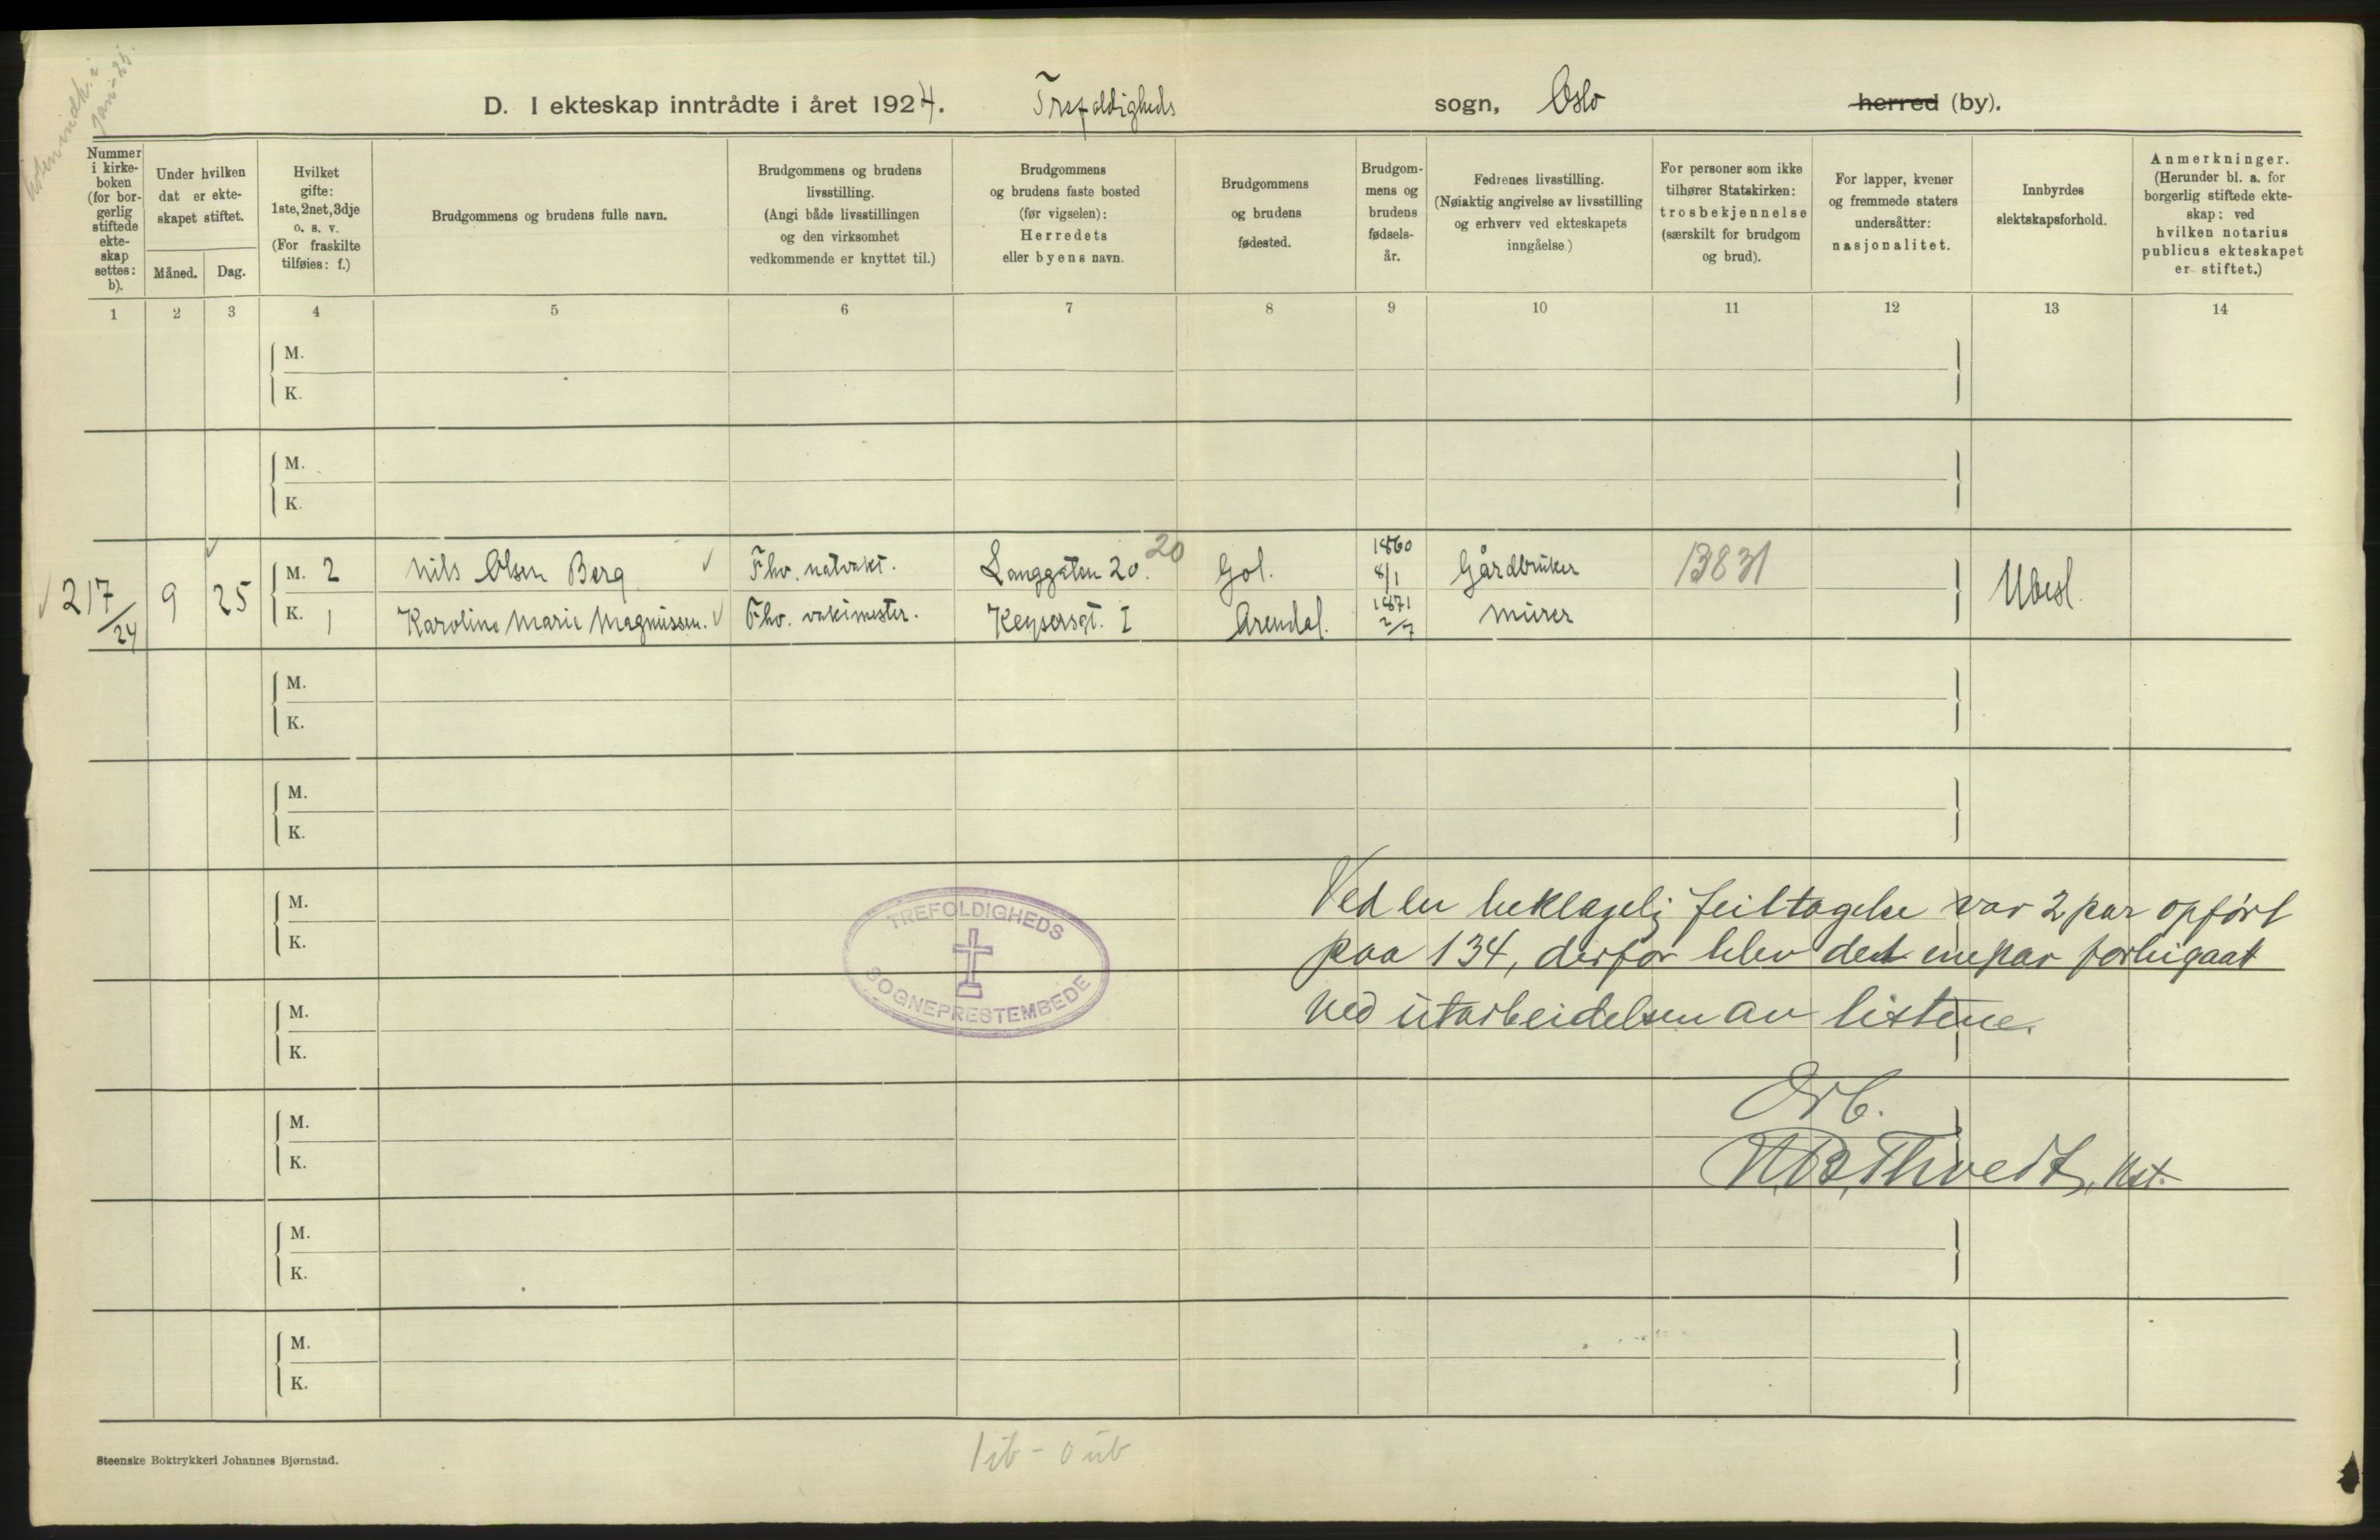 D. I ekteskap inntrådte i året 1924. Trefoldigheds sogn, Oslo herred (by).
Nummer i kirkeboken (for borgerlig stiftede ekteskap settes: b).
Under hvilken dat er ekteskapet stiftet.
Måned. Dag.
Hvilket gifte: 1ste, 2net, 3dje o. s. v. (For fraskilte tilføies: f.)
Brudgommens og brudens fulle navn.
Brudgommens og brudens livsstilling. (Angi både livsstillingen og den virksomhet vedkommende er knyttet til.)
Brudgommens og brudens faste bosted (før vigselen): Herredets eller byens navn.
Brudgommens og brudens fødested.
Brudgommens og brudens fødselsår.
Fedrenes livsstilling. (Nøiaktig angivelse av livsstilling og erhverv ved ekteskapets inngåelse.)
For personer som ikke tilhører Statskirken: trosbekjennelse (særskilt for brudgom og brud).
For lapper, kvener og fremmede staters undersåtter: nasjonalitet.
Innbyrdes slektskapsforhold.
Anmerkninger. (Herunder bl. a. for borgerlig stiftede ekteskap: ved hvilken notarius publicus ekteskapet er stiftet.)
1 2 3 4 5 6 7 8 9 10 11 12 13 14
M.
K.
M.
K.
217/24 9 25
M. 2 Nils Olsen Berg Fhv. natvakt. Langgaten 20. 20 Gol. 1860 8/1 Gårdbruker 13831 Ubesl.
K. 1 Karoline Marie Magnussen. Fhv. vaktmester. Keysersgt. 1 Arendal. 1871 2/7 Murer
M.
K.
M.
K.
M.
K.
M.
K.
M.
K.
M.
K.
M.
K.
TREFOLDIGHEDS
SOGNEPRESTEMBEDE
Ved en beklagelig feiltagelse var 2 par opført
paa 134, derfor blev det ene par forbigaat
ved utarbeidelsen av listene.
Ærb.
1 ib - 0 ub
Steenske Boktrykkeri Johannes Bjørnstad.